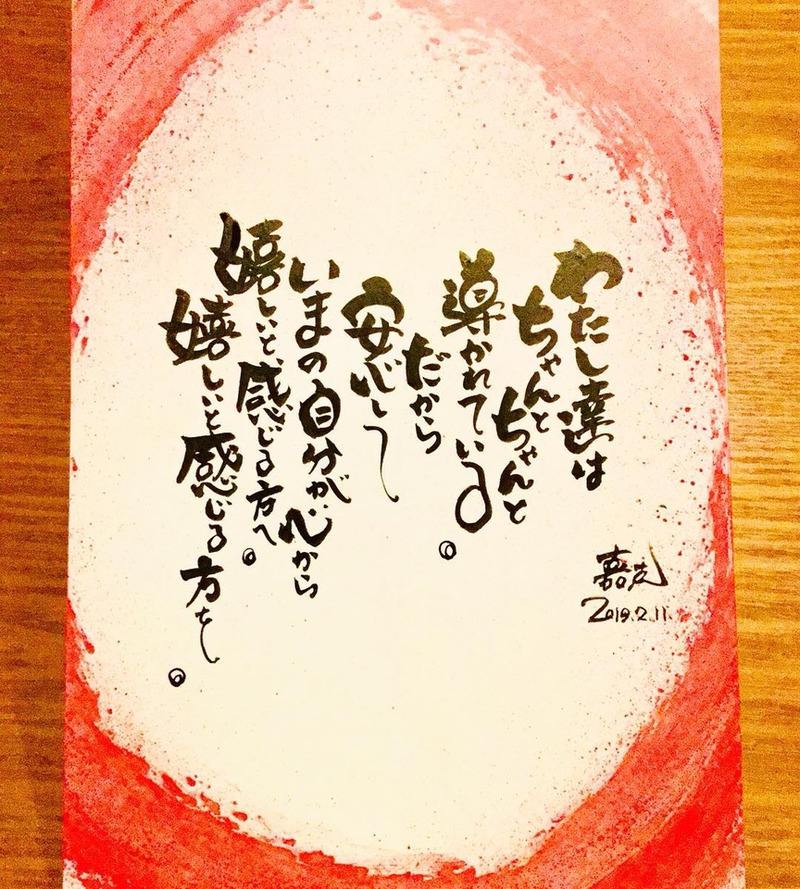 わたし達は
ちゃんと
ちゃんと
導かれている。
だから
安心して
いまの自分が心から
嬉しいと、感じる方へ。
嬉しいと感じる方を。
嘉光
2019.2.11.